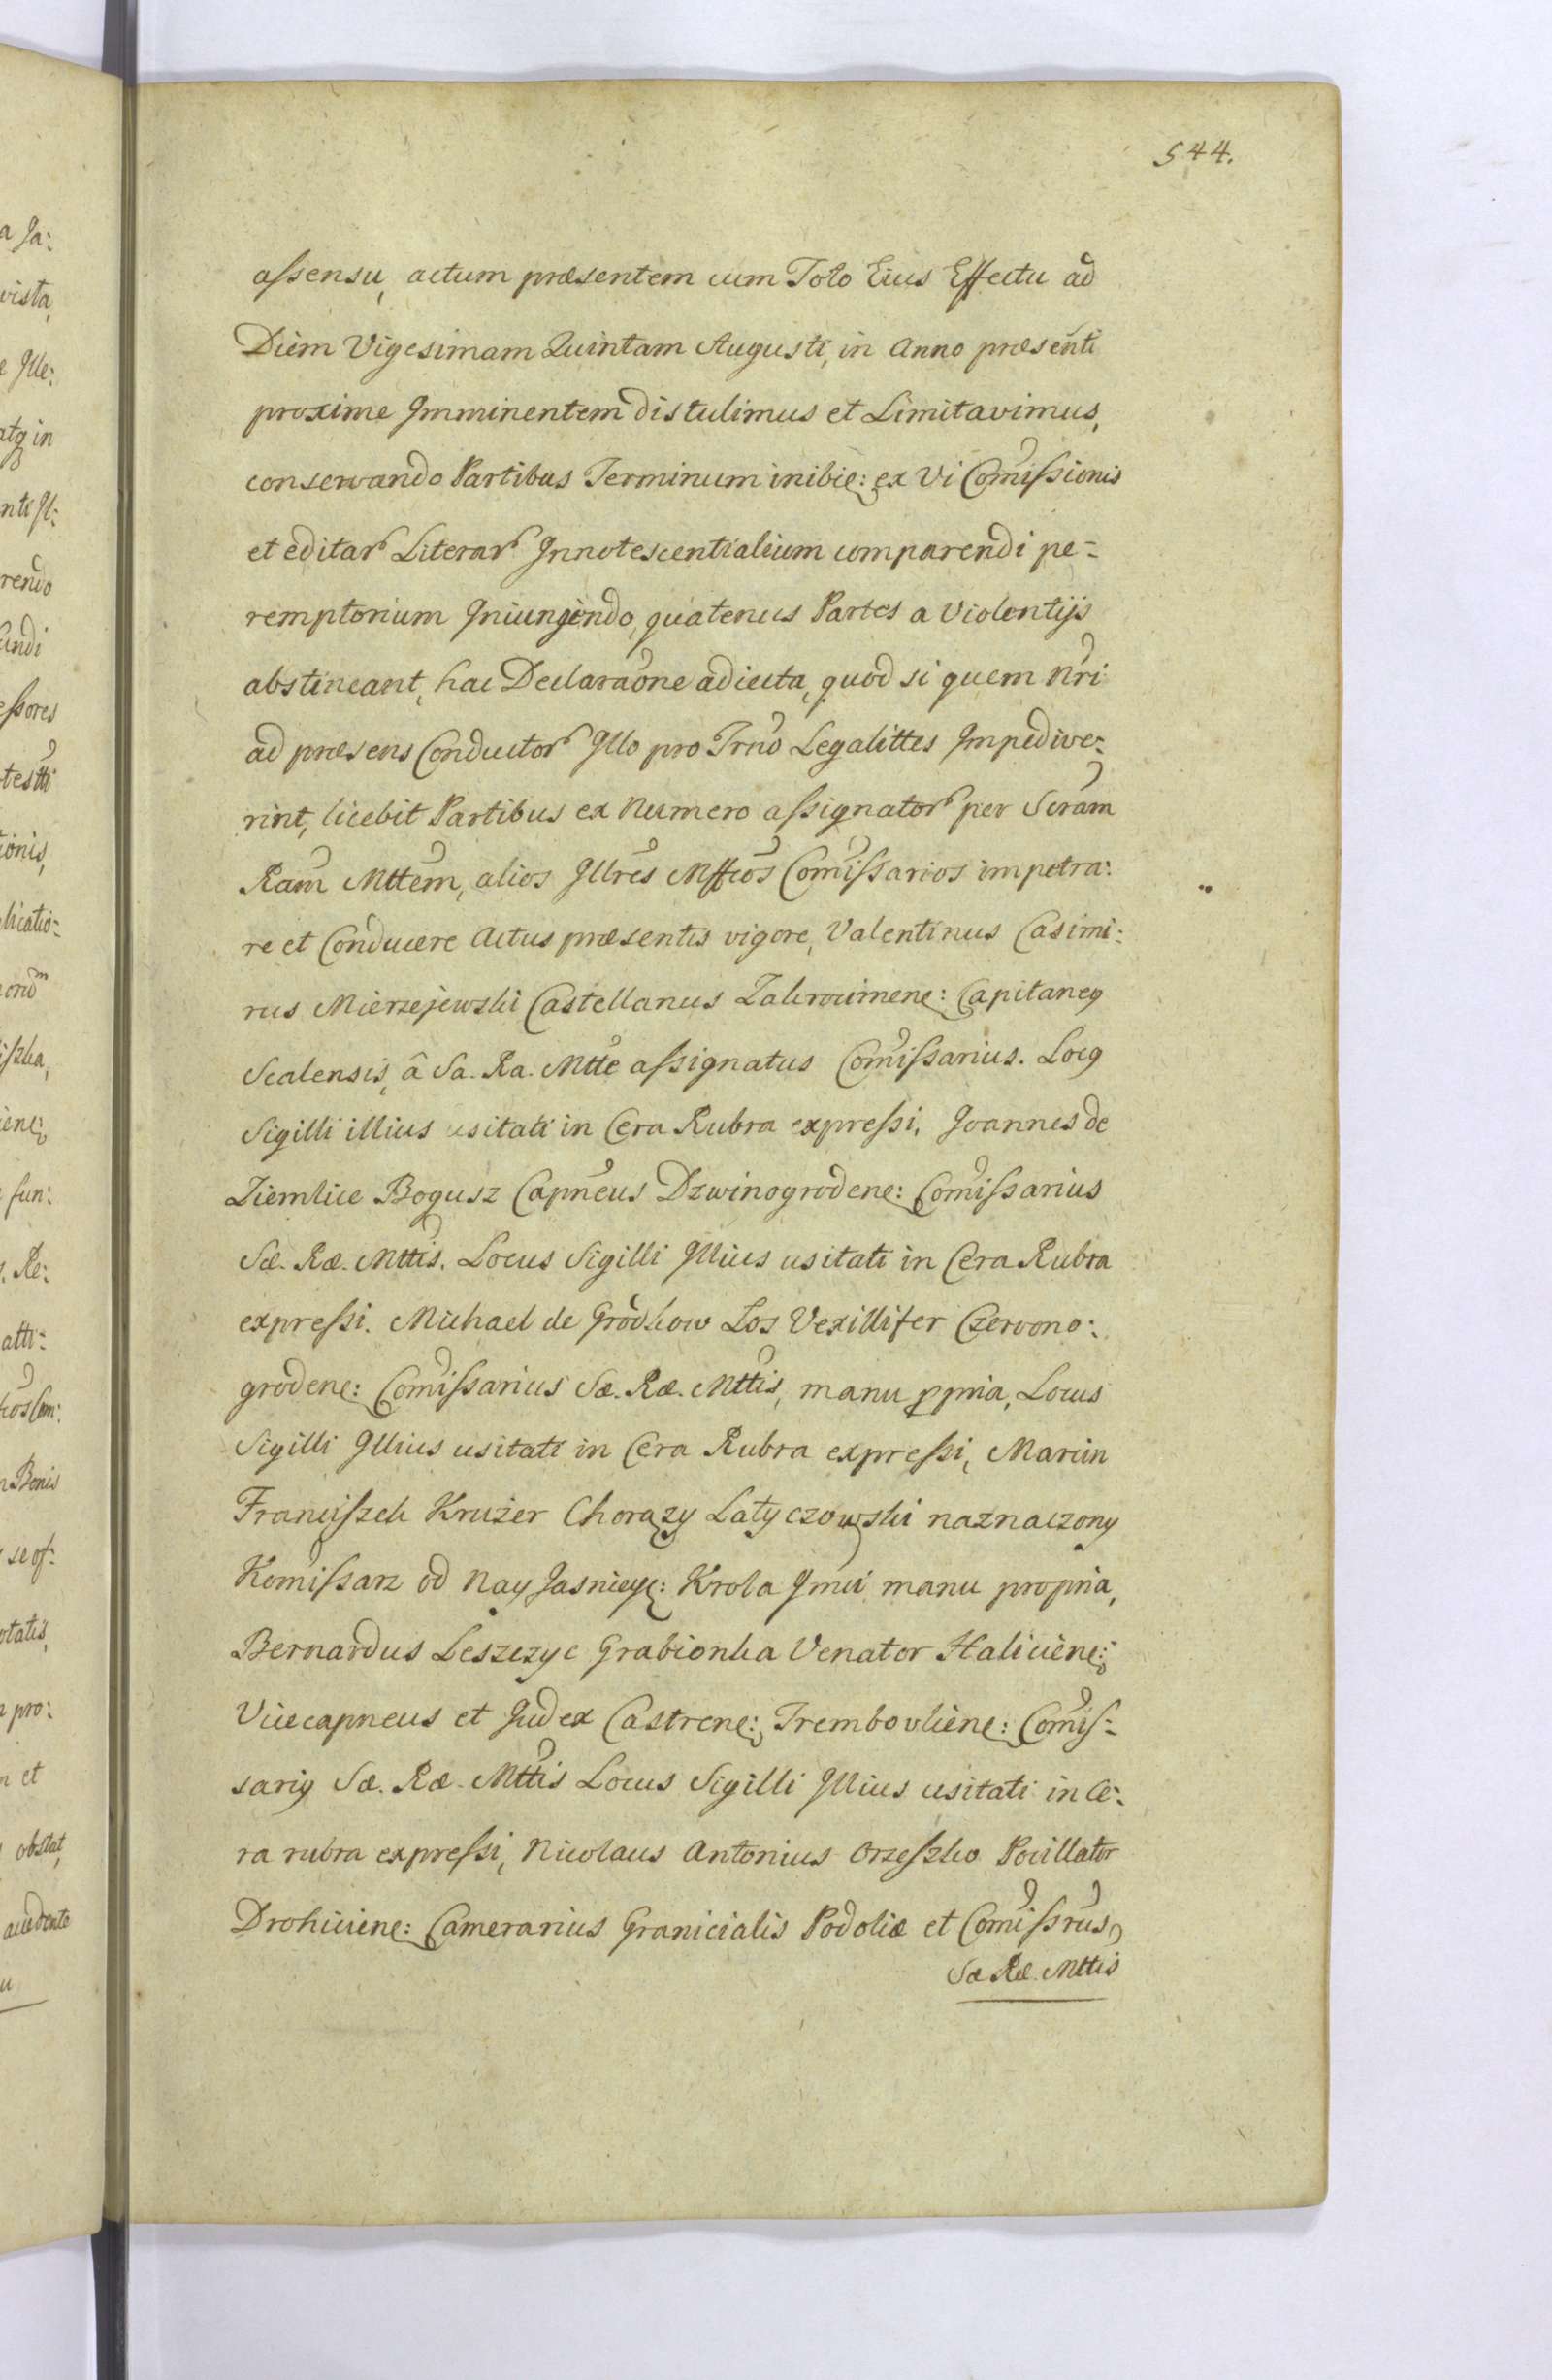 544.
assensu, actum præsentem cum Toto Eius Effectu ad
Diem Vigesimam Quintam Augusti, in Anno præsenti
proxime Imminentem distulimus et Limitavimus,
conservando Partibus Terminum inibie: ex Vi Comissionis
et editar Literar Innotescentialium comparendi pe=
remptorium Iniungendo, quatenus Partes a Violentijs
abstineant, hac Declaraone adiecta, quod si quem Nri
ad præsens Conductor Illo pro Trno Legalittes Impedive:
rint, licebit Partibus ex Numero assignator per Scram
Ram Mttem, alios Illres Mffcos Comissarios impetra:
re et Conducere Actus præsentis vigore, Valentinus Casimi:
rus Mierzejewski Castellanus Zakrocimene: Capitaneq
Scalensis, â Sa. Ra. Mtte assignatus Comissarius. Locq
Sigilli illius usitati in Cera Rubra expressi, Joannes de
Ziemlice Bogusz Capneus Dzwinogrodene: Comissarius
Sæ. Ræ. Mttis. Locus Sigilli Illius usitati in Cera Rubra
expressi. Michael de Grodkow Los Vexillifer Czervono:
grodene: Comissarius Sæ. Ræ. Mttis, manu ppria, Locus
Sigilli Illius usitati in Cera Rubra expressi, Marcin
Franciszek Krużer Chorązy Latyczowski naznaczony
Komissarz od Nay Jasnieyę: Krola Jmci manu propria,
Bernardus Leszczyc Grabionka Venator Haliciene:
Vicecapneus et Judex Castrene: Trembovliene: Comis=
sariq Sæ. Ræ. Mttis Locus Sigilli Illius usitati in Ce:
ra rubra expressi, Nicolaus Antonius Orzeszko Pocillator
Drohiciene: Camerarius Granicialis Podoliæ et Comissrus,
Sæ Ræ. Mttis